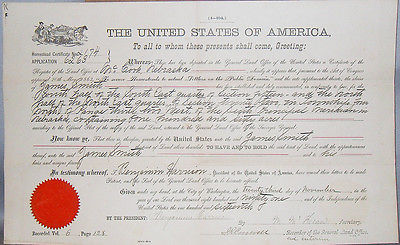 (4-404.)
THE UNITED STATES OF AMERICA,
To all to whom these presents shall come, Greeting:
Homestead Certificate No.
APPLICATION
Whereas There has been deposited in the General Land Office of the United States a Certificate of the
Register of the Land Office at McCook Nebraska, whereby it appears that, pursuant to the Act of Congress
approved 20th May, 1862, "To secure Homesteads to actual Settlers on the Public Domain," and the acts supplemental thereto, the claim
of James Smith has been established and duly consummated, in conformity to law, for the
South half of the South East quarter of Section fifteen and the North
half of the North East quarter of Section twenty two, in township four
Nebraska, containing one hundred and sixty acres
according to the Official Plat of the Survey of the said Land, returned to the General Land Office by the Surveyor General.
Now know ye, That there is therefore granted by the United States unto the said James Smith
the tract of Land above described: TO HAVE AND TO HOLD the said tract of Land, with the
appurtenances thereof, unto the said James Smith and to his
In testimony whereof, I, Benjamin Harrison, President of the United States of America, have caused these letters to
be made Patent, and the Seal of the General Land Office to be hereunto affixed.
Given under my hand, at the City of Washington, the twenty third day of November, in the year
of our Lord one thousand eight hundred and ninety one, and of the Independence of the
United States the one hundred and sixteenth
BY THE PRESIDENT: Benjamin Harrison
Secretary.
Recorder of the General Land Office.
ad interim
Recorded Vol. 6, Page 128